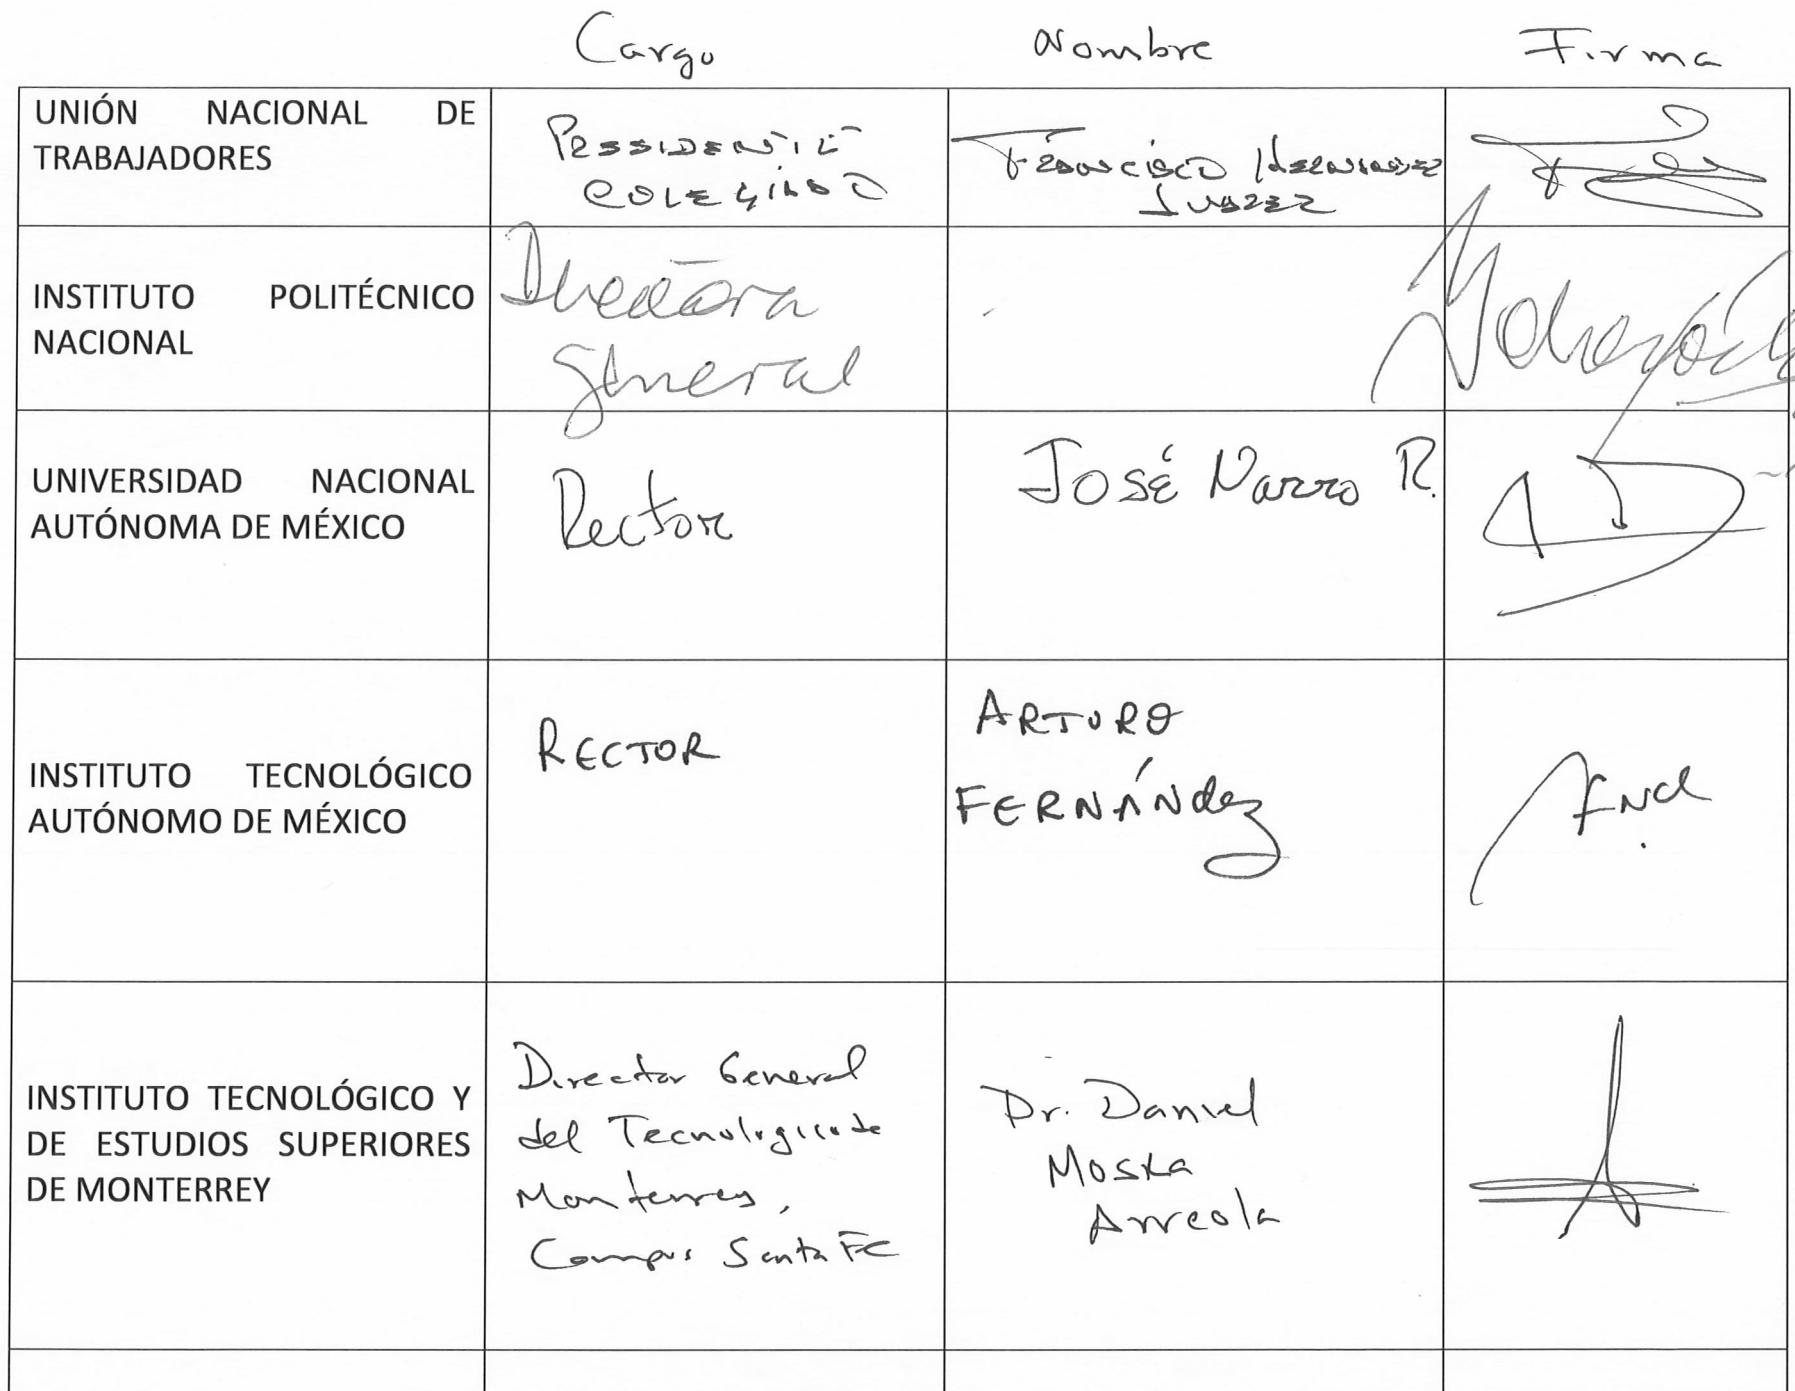 Cargo Nombre Firma
UNIÓN NACIONAL DE
TRABAJADORES
PRESIDENTE
COLEGIADO
FRANCISCO HERNANDEZ
JUAREZ
INSTITUTO POLITÉCNICO
NACIONAL
Directora
General
UNIVERSIDAD NACIONAL
AUTÓNOMA DE MÉXICO
Rector
José Narro R.
INSTITUTO TECNOLÓGICO
AUTÓNOMO DE MÉXICO
RECTOR
ARTURO
FERNÁNdez
INSTITUTO TECNOLÓGICO Y
DE ESTUDIOS SUPERIORES
DE MONTERREY
Director General
del Tecnologico de
Monterrey,
Campus Santa Fe
Dr. Daniel
Moska
Arreola